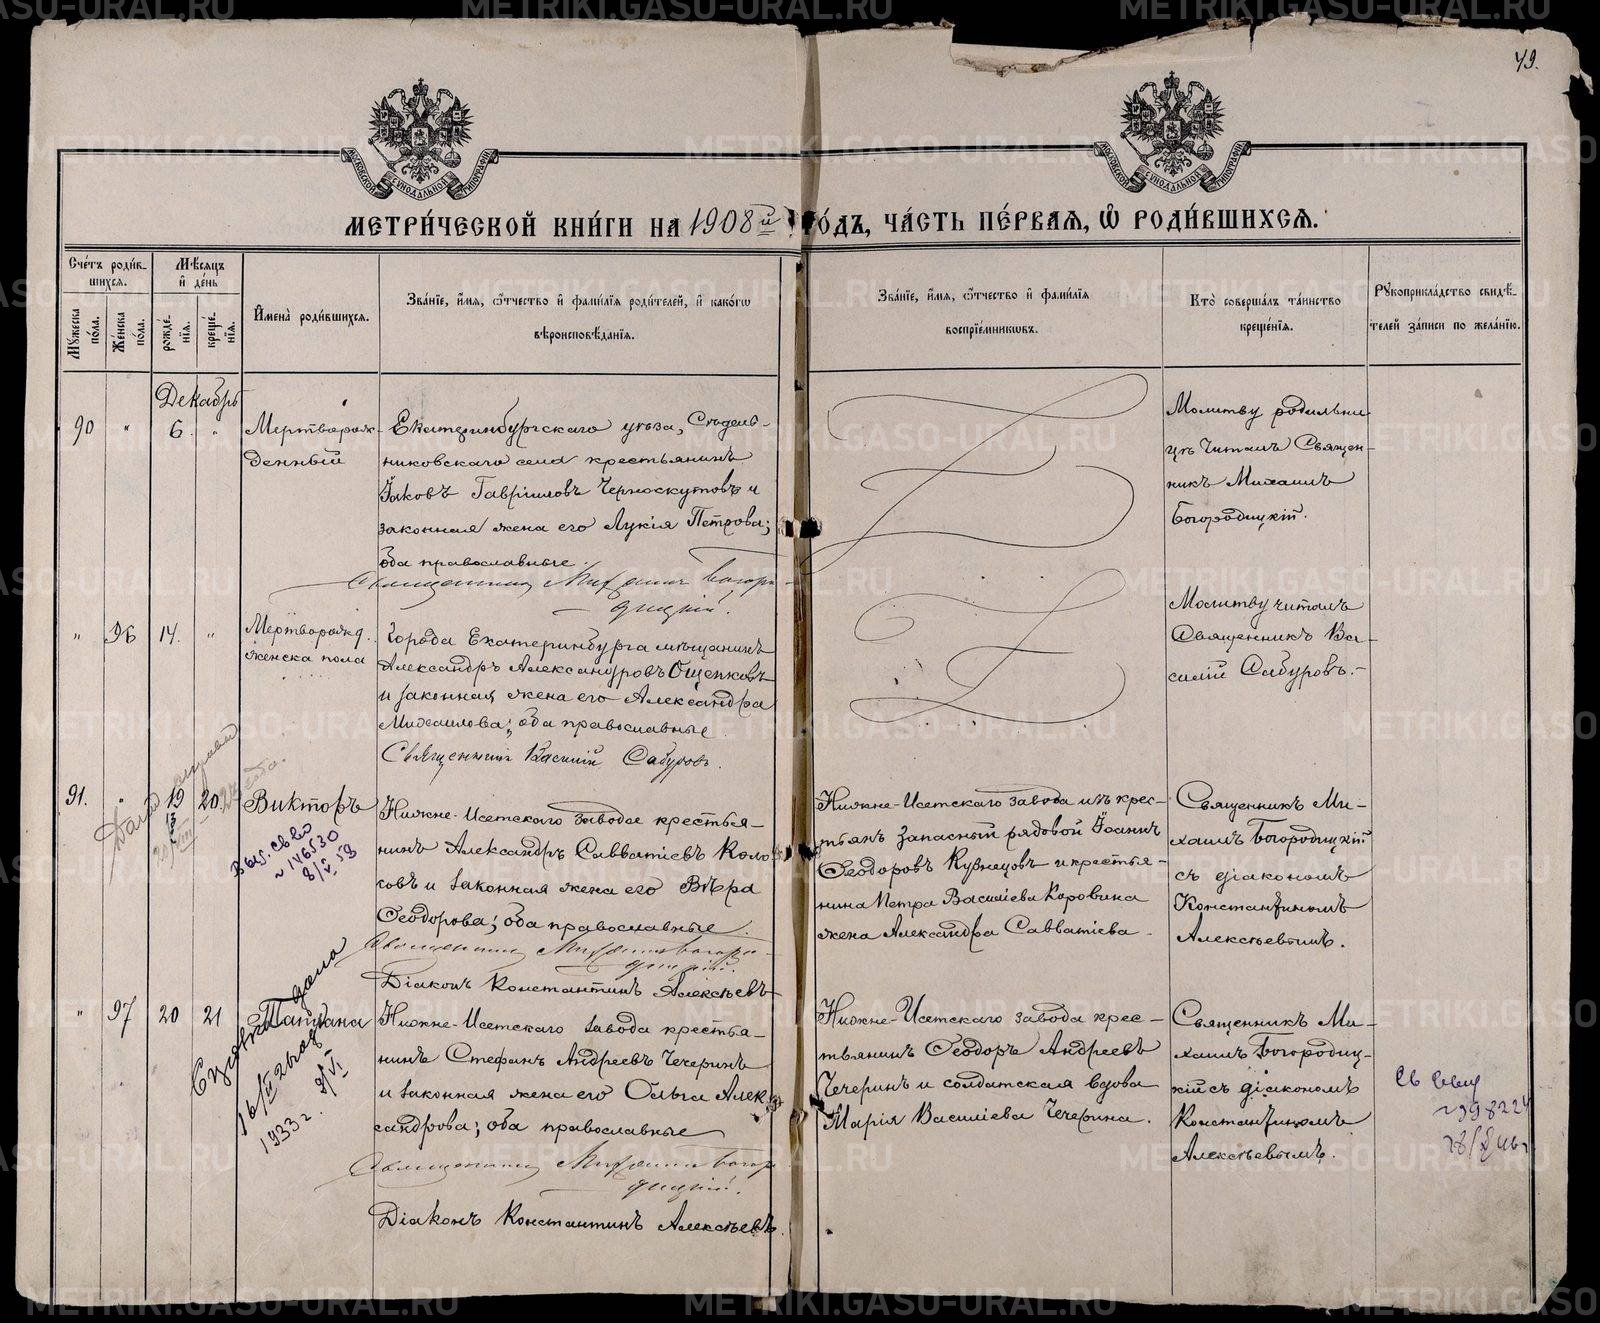 49.
МОСКОВСКОЙ СѴНОДАЛЬНОЙ ТИПОГРАФІИ
МОСКОВСКОЙ СѴНОДАЛЬНОЙ ТИПОГРАФІИ
МЕТРИ́ЧЕСКОЙ КНИ́ГИ НА 1908й ГО́ДЪ, ЧА́СТЬ ПЕ́РВАЯ, Ѡ РОДИ́ВШИХСЯ.
Сче́тъ роди́в-
шихся.
Мѣ́сяцъ
и де́нь
Мꙋжеска по́ла.
Же́нска по́ла.
рожде́-
нїя.
креще́-
нїя.
Имена̀ роди́вшихся.
Зва́нїе, и́мя, ѻ́тчество и фами́лїя роди́телей, и како́гѡ
вѣроисповѣ́данїя.
Зва́нїе, и́мя, ѻ́тчество и фами́лїя
воспрїе́мникѡвъ.
Кто̀ соверша́лъ та́инство
креще́нїя.
Рꙋкоприкла́дство свидѣ́-
телей за́писи по жела́нїю.
Декабрь
90 " 6. "
Мертворож-
денный
Екатеринбургскаго уѣзда, Сѣдель-
никовскаго села крестьянинъ
Іаковъ Гавріиловъ Черноскутовъ и
законная жена его Лукія Петрова;
оба православные.
Священникъ Михаилъ Богоро-
дицкій.
Молитву родильни-
цѣ читалъ Священ-
никъ Михаилъ
Богородицкій.
" 96 14. "
Мертворожд.
женска пола
Города Екатеринбурга мѣщанинъ
Александръ Александровъ Ощепковъ
и законная жена его Александра
Михаилова; оба православные.
Священникъ Василій Сабуровъ.
Молитву читалъ
Священникъ Ва-
силій Сабуровъ.
91. " 19 20.
Викторъ
Выд. св-во
№ 146530
8/V 53
Нижне-Исетскаго завода крестья-
нинъ Александръ Савватіевъ Коло-
ковъ и законная жена его Вѣра
Ѳеодорова; оба православные.
Священникъ Михаилъ Богоро-
дицкій.
Діаконъ Константинъ Алексѣевъ
Нижне-Исетскаго завода изъ крес-
тьянъ запасный рядовой Іоаннъ
Ѳеодоровъ Кузнецовъ и крестья-
нина Петра Василіева Коровина
жена Александра Савватіева.
Священникъ Ми-
хаилъ Богородицкій
съ діакономъ
Константиномъ
Алексѣевымъ.
" 97 20 21
Татіана
1933 г. 9/VI
Нижне-Исетскаго завода крестья-
нинъ Стефанъ Андреевъ Чечеринъ
и законная жена его Ольга Алек-
сандрова; оба православные
Священникъ Михаилъ Богоро-
дицкій.
Діаконъ Константинъ Алексѣевъ.
Нижне-Исетскаго завода крес-
тьянинъ Ѳеодоръ Андреевъ
Чечеринъ и солдатская вдова
Марія Василіева Чечерина.
Священникъ Ми-
хаилъ Богородиц-
кій съ діакономъ
Константиномъ
Алексѣевымъ.
METRIKI.GASO-URAL.RU